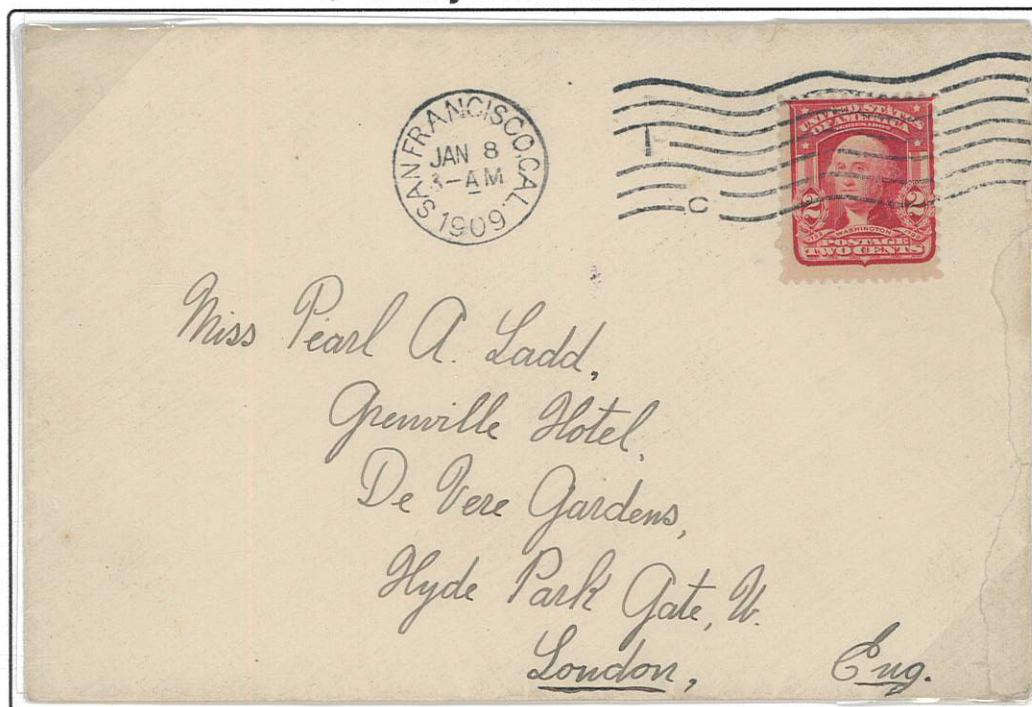 SAN FRANCISCO, CAL.
JAN 8
3-AM
1909
T
C
UNITED STATES
OF AMERICA
SERIES 1902
2 2
WASHINGTON
POSTAGE
TWO CENTS
Miss Pearl A. Ladd,
Grenville Hotel,
De Vere Gardens,
Hyde Park Gate, W.
London, Eng.